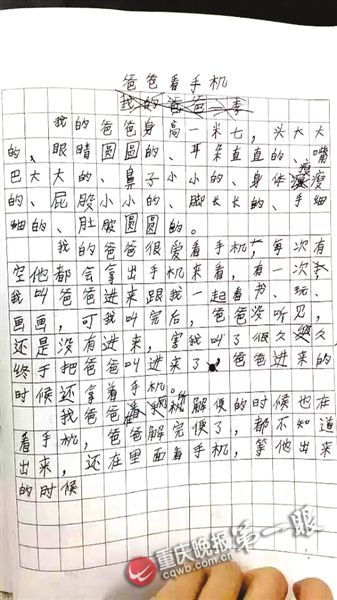 爸爸看手机
我的爸爸一季
我的爸爸身高一米七，头大大
的、眼睛圆圆的、耳朵直直的、嘴
巴大大的、鼻子小小的、身体瘦瘦
的、屁股小小的、脚长长的、手细
细的、肚股圆圆的。
我的爸爸很爱看手机，每次有
空他都会拿出手机来看，有一次，
我叫爸爸进来跟我一起看书、玩、
画画，可我叫完后，爸爸没听见，
还是没有进来，害我叫了很久很久
终于把爸爸叫进来了，爸爸进来的
时候还拿着手机。
我爸爸解便的时候也在
看手机，爸爸解完便了，都不知道
出来，还在里面看手机，等他出来
的时候
重庆晚报第一眼
cqwb.com.cn